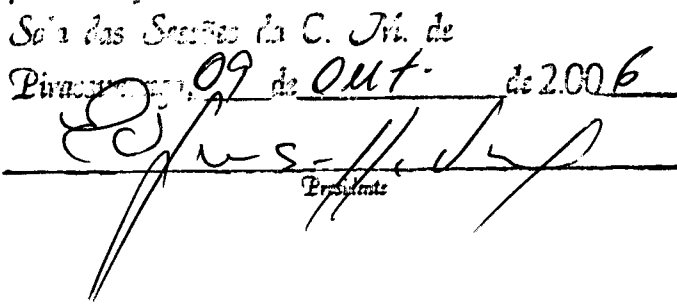 Sala das Sessões da C. M. de
Pirassununga, 09 de Out. de 2.006
Presidente